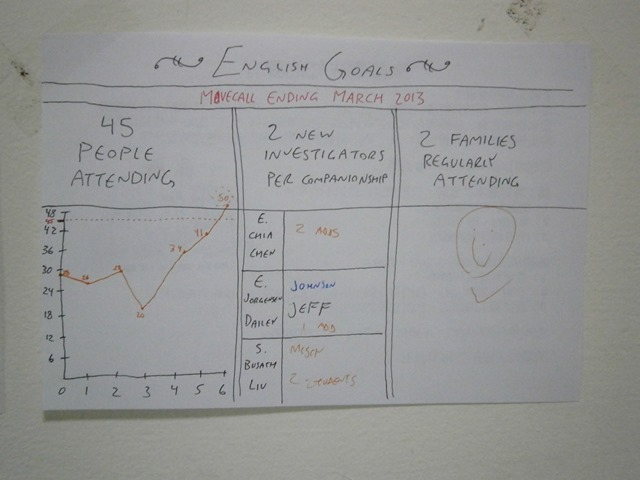 English Goals
Movecall Ending March 2013
45
People
Attending
2 New
Investigators
Per Companionship
2 Families
Regularly
Attending
48
45
42
36
30
24
18
12
6
0 1 2 3 4 5 6
50
41
20
E.
Chia
Chen
2
E.
Jorgensen
Dailey
Johnson
Jeff
1
S.
Busath
Liu
2 students